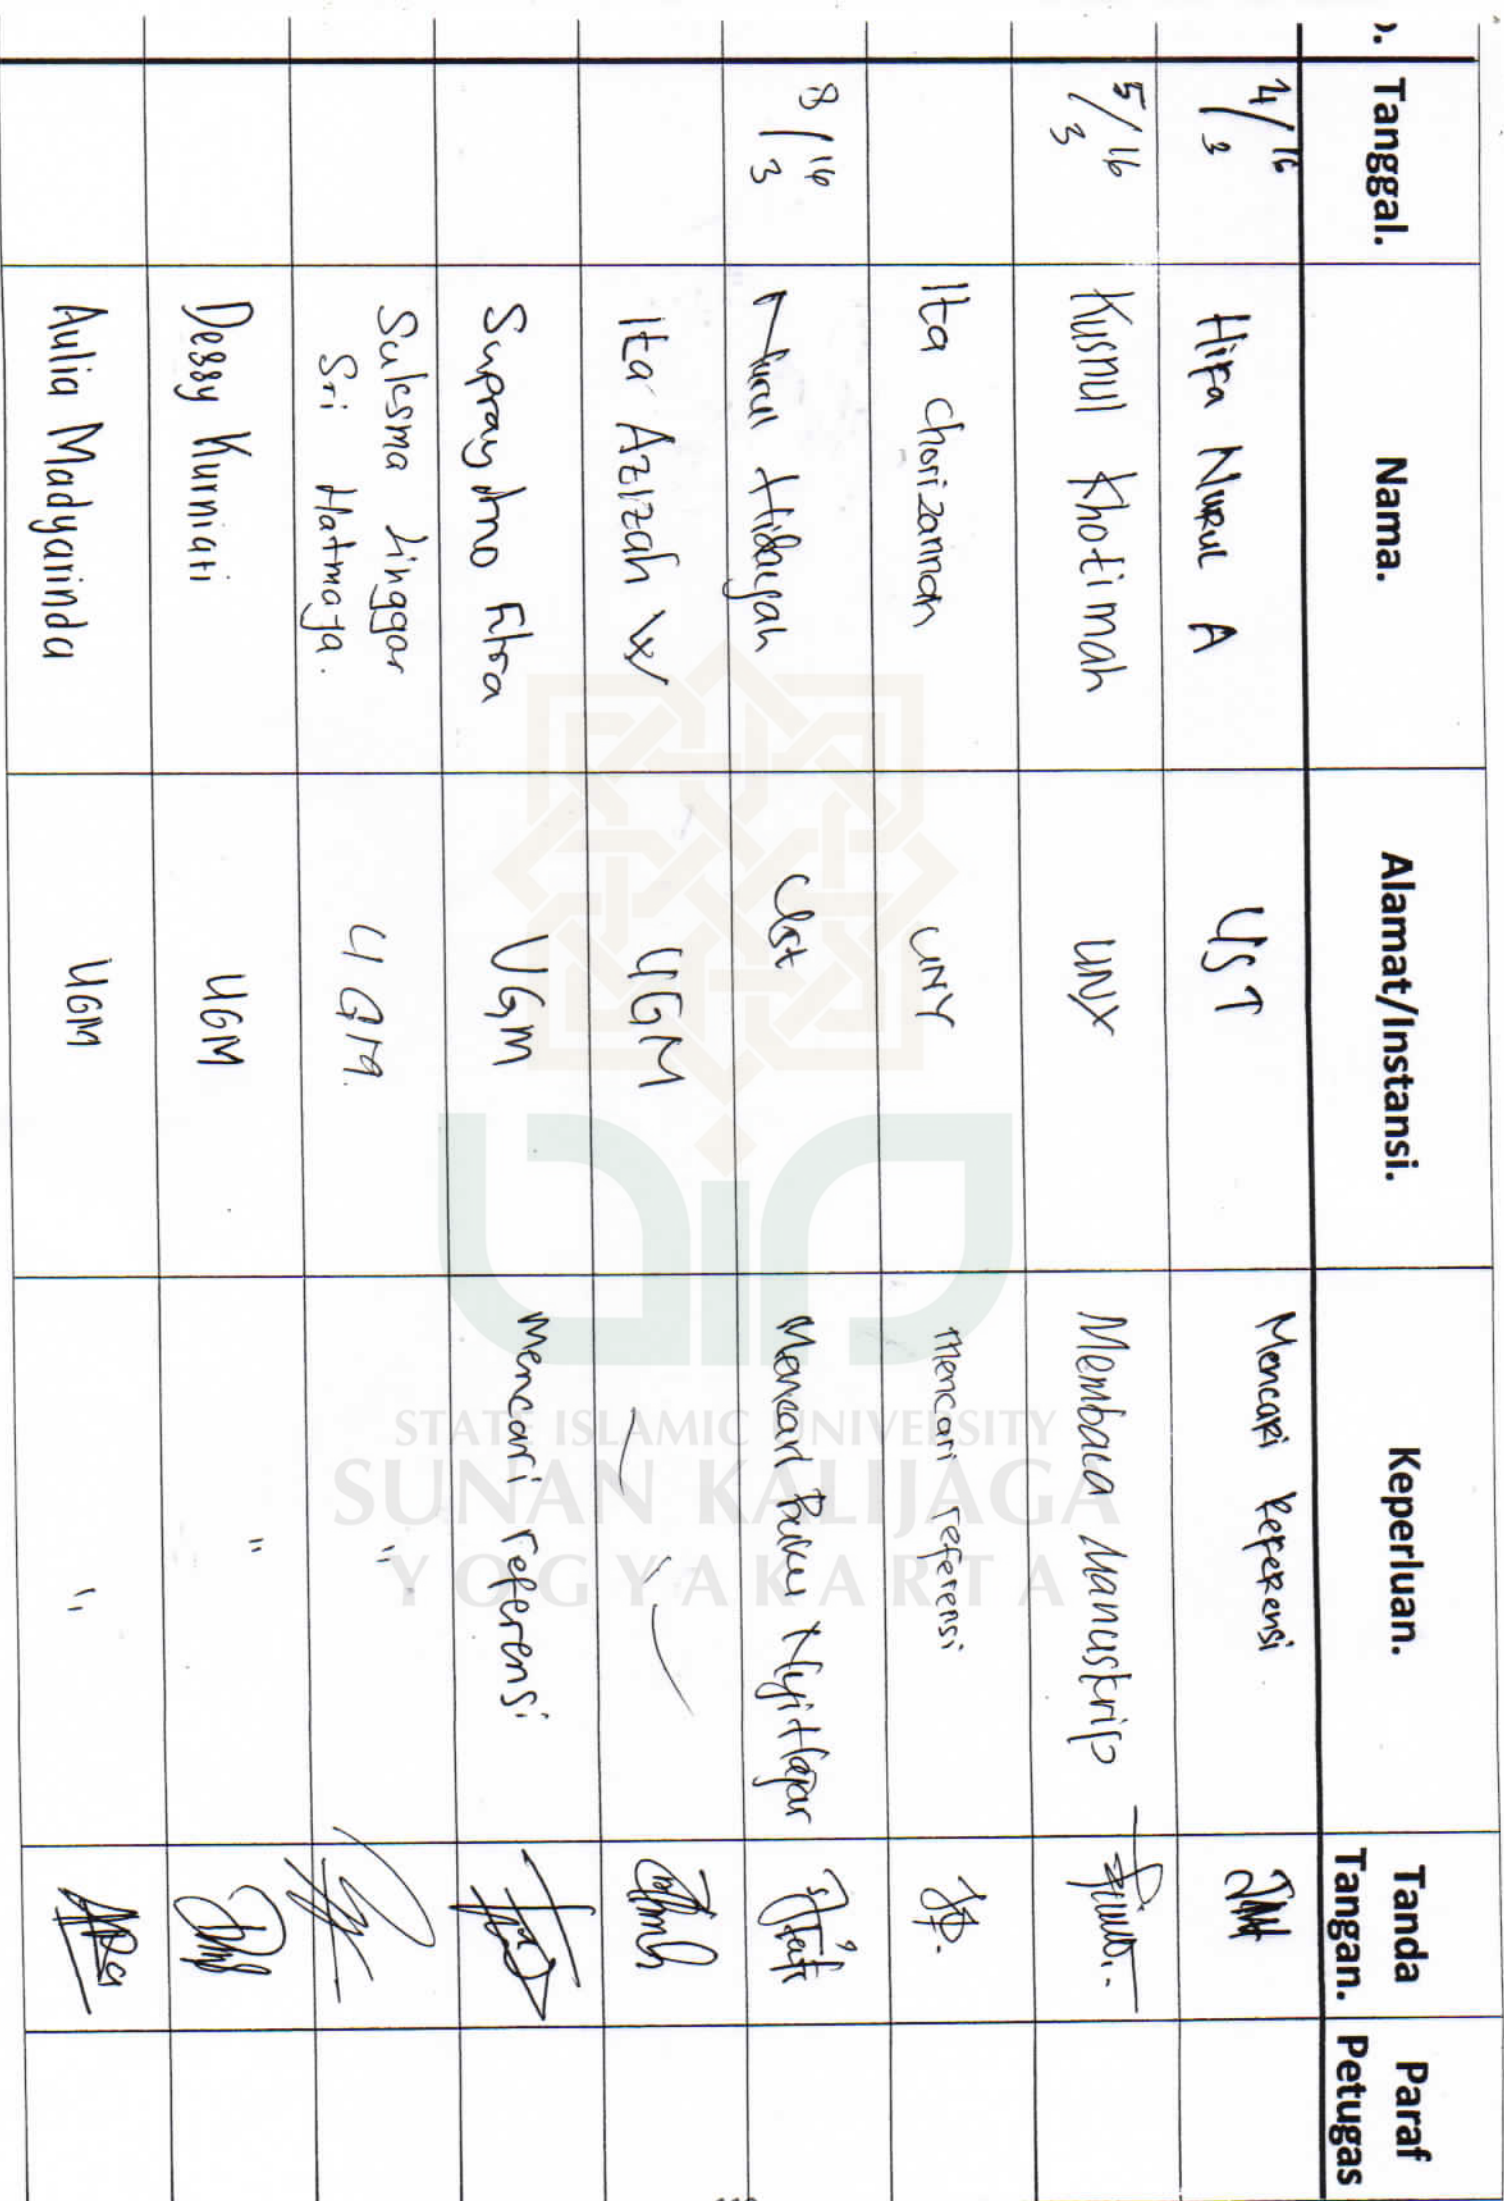 ). Tanggal. Nama. Alamat/Instansi. Keperluan. Tanda Tangan. Paraf Petugas
4/3 16 Hifa Nurul A UST Mencari Referensi
5/3 16 Kusnul Khotimah UNY Membaca Manuskrip
Ita Chorizannah UNY mencari referensi
8/3 16 Nurul Hidayah Ust Mencari Buku Nyi Hajar
Ita Azizah W UGM — " —
Suprayitno Fitra UGM mencari referensi
Suksma Linggar Sri Hatmaja. UGM. "
Dessy Kurniati UGM "
Aulia Madyarinda UGM "
STATE ISLAMIC UNIVERSITY
SUNAN KALIJAGA
YOGYAKARTA